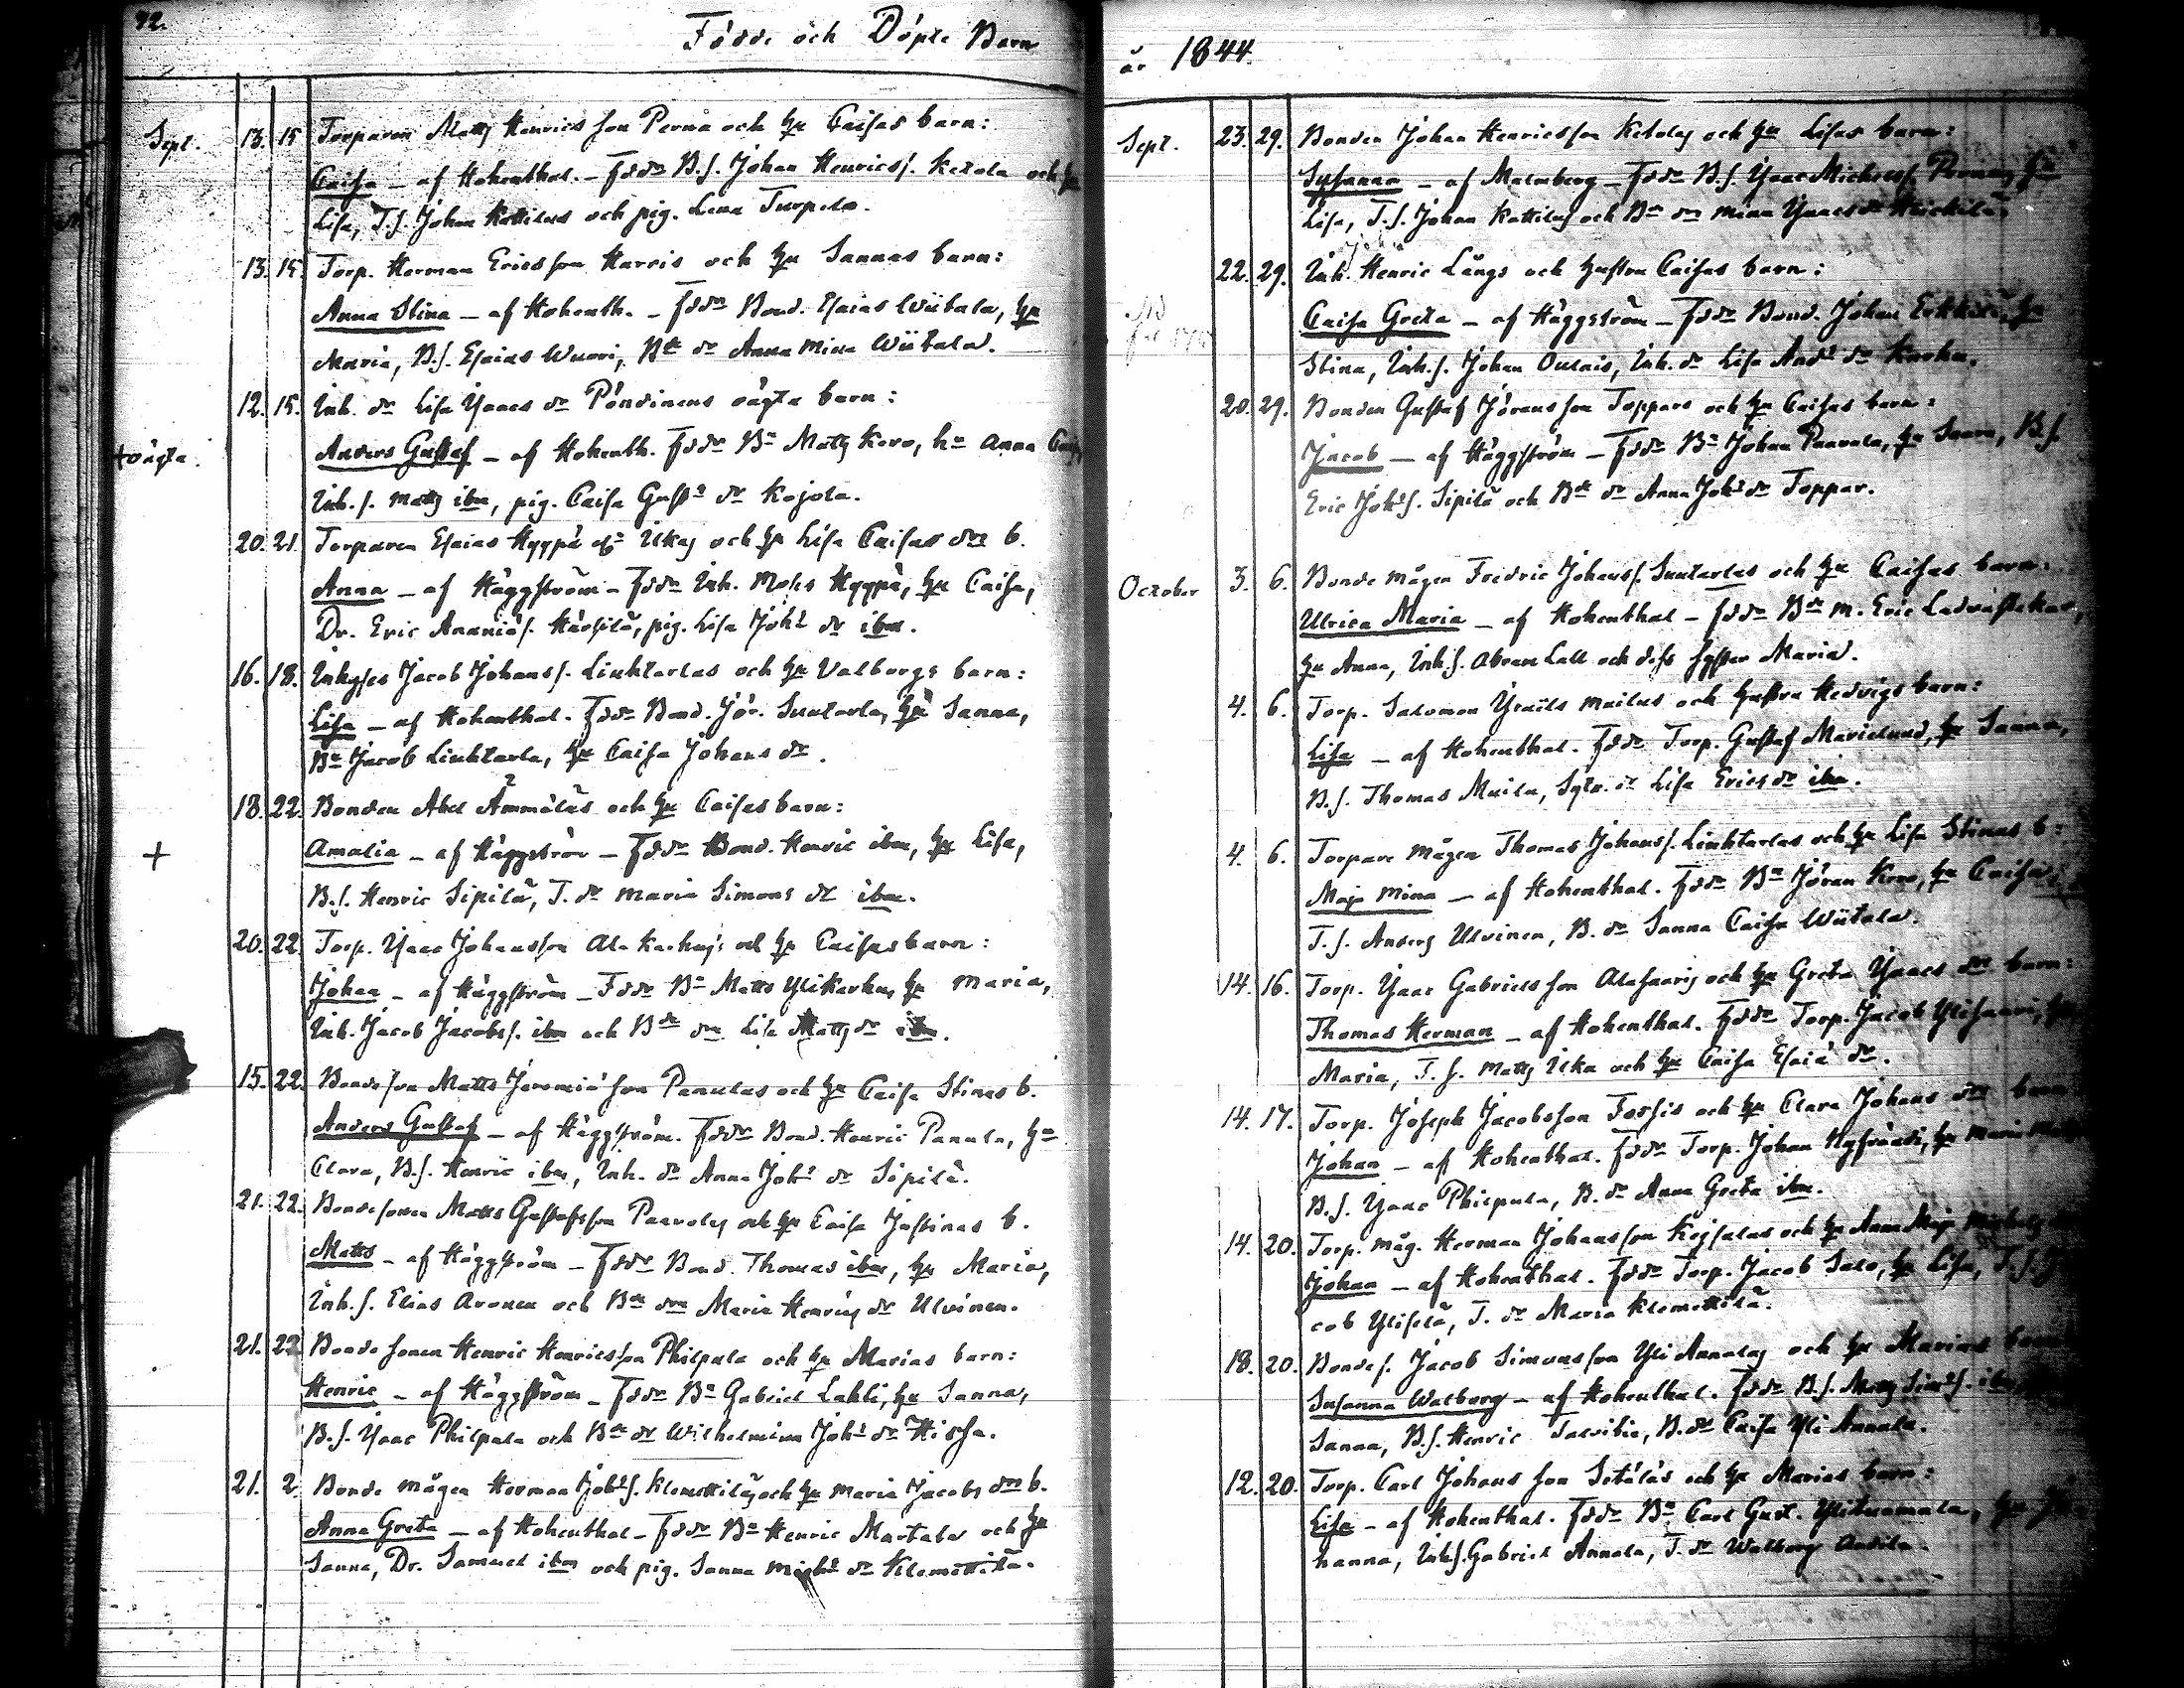 42.
Födde och Döpte Barn
Sept. 13. 15 Torparen Matts Henrics son Perna och hu Caisas barn:
Caisa – af Hohenthal. – Fddr B.s. Johan Henricss. Ketola och hu
Lisa, T.s. Johan Kattilus och pig. Lena Turpela.
13. 15. Torp. Herman Ericsson Harris och hu Sannas barn:
Anna Stina – af Hohenth. – Fddr Bond. Esaias Wiitala, hu
Maria, B.s. Esaias Wuori, Bde dr Anna Mina Wiitala.
12. 15. Inh. dr Lisa Isaacs dr Pöndinens oägta barn:
+ oägta. Anders Gustaf – af Hohenth. Fddr Bn Matts Kero, hu Anna
Inh.s. Matts ibm, pig. Caisa Gusts dr Kojola.
20. 21. Torparen Esaias Hyypä Ukas och hu Lisa Caisas drs b.
Anna – af Häggström – Fddr Inh. Moses Hyypä, hu Caisa,
Dr. Eric Ananiäs. Härsilä, pig. Lisa Johs dr ibm.
16. 18. Inhyses Jacob Johanss. Liuhtarlas och hu Valborgs barn:
Lisa – af Hohenthal. Fddr Bond. Jör. Suutarla, hu Sanna,
Bn Jacob Liuhtarla, hu Caisa Johans dr.
18. 22. Bonden Abel Ämmäläs och hu Caisas barn:
+ Amalia – af Häggström – Fddr Bond. Henric ibm, hu Lisa,
B.s. Henric Sipilä, T. dr Maria Simons dr ibm.
20. 22. Torp. Isaac Johansson Ala Karhus och hu Caisas barn:
Johan – af Häggström – Fddr Bn Matts Ylikarhu, hu Maria,
Inh. Jacob Jacobss. ibm och Bde drn Lisa Matts dr ibm.
15. 22. Bondeson Matts Jeremiä son Panulas och hu Caisa Stinas b.
Anders Gustaf – af Häggström. Fddr Bond. Henric Panula, hu
Clara, B.s. Henric ibm, Inh. dr Anna Johs dr Sipilä.
21. 22. Bondesonen Matts Gustafsson Paavolas och hu Caisa Justinas b.
Matts – af Häggström – Fddr Bond. Thomas ibm, hu Maria,
Inh.s. Elias Aronen och Bde drn Maria Henrics dr Ulvinen.
21. 22 Bonde sonen Henric Henricsson Philpula och hu Marias barn:
Henric – af Häggström – Fddr Bn Gabriel Lahti, hu Sanna,
B.s. Isaac Philpula och Bde dr Wilhelmina Johs dr Hissa.
21. 2. Bonde mågen Herman Johs s. Klemettiläs och hu Maria Jacobs drs b.
Anna Greta – af Hohenthal – Fddr Bn Henric Martala och hu
Sanna, Dr. Samuel ibm och pig. Sanna Michs dr Klemettilä.
år 1844.
Sept. 23. 29. Bonden Johan Henricsson Ketolas och hu Lisas barn:
Susanna – af Malmberg – Fddr B.s. Isaac Michelss. Perna, hu
Lisa, T.s. Johan Kattilus och Bn drn Mina Isaacs dr
22. 29. Inh. Henric Långs och hustru Caisas barn:
Caisa Greta – af Häggström – Fddr Bond. Johan Erkkilä, hu
Stina, Inh.s. Johan Oulais, Inh. dr Lisa Ands dr Karhu.
20. 29. Bonden Gustaf Jöransson Toppars och hu Caisas barn:
Jacob – af Häggström – Fddr Bn Johan Paavola, hu Saara, B.s.
Eric Johs s. Sipilä och Bde dr Anna Johs dr Toppar.
October 3. 6. Bonde mågen Fredric Johanss. Suutarlas och hu Caisas barn:
Ulrica Maria – af Hohenthal – Fddr Bde m. Eric
hu Anna, Inh.s. Abram Lall och dess syster Maria.
4. 6. Torp. Salomon Israels Mailas och hustru Hedvigs barn:
Lisa – af Hohenthal. Fddr Torp. Gustaf Marielund, hu Sanna,
B.s. Thomas Maila, Sytn. dr Lisa Erics dr ibm.
4. 6. Torpare mågen Thomas Johanss. Liuhtarlas och hu Lisa Stinas b:
Maja Mina – af Hohenthal. Fddr Bn Jöran Kero, hu Caisa,
T.s. Anders Ulvinen, B. dr Sanna Caisa Wiitala.
14. 16. Torp. Isaac Gabrielsson Alasaaris och hu Greta Isaacs drs barn:
Thomas Herman – af Hohenthal. Fddr Torp. Jacob Ylisaari, hu
Maria, T.s. Matts Uka och hu Caisa Esaiä dr.
14. 17. Torp. Joseph Jacobsson Forsis och hu Clara Johans drs barn
Johan – af Hohenthal. Fddr Torp. Johan Nyfrändi, hu Maria
B.s. Isaac Philpula, B. dr Anna Greta ibm.
14. 20. Torp. måg. Herman Johansson Kojsalas och hu Anna Maja
Johan – af Hohenthal. Fddr Torp. Jacob Salo, hu Lisa, T.s. Ja
cob Yliselä, T. dr Maria Klemettilä.
18. 20. Bondes. Jacob Simonsson Yli Annalas och hu Marias barn
Susanna Walborg – af Hohenthal. Fddr B.s. Matts Sims s. ibm,
Sanna, B.s. Henric Talvitie, B. dr Caisa Yli Annala.
12. 20. Torp. Carl Johans son Setäläs och hu Marias barn:
Lisa – af Hohenthal. Fddr Bn Carl Gust. Ylituomala, hu Jo
hanna, Inh.s. Gabriel Annala, T. dr Walborg Andila.